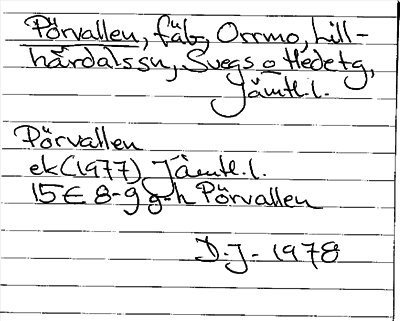 Pörvallen, fäb, Orrmo, Lill-
härdalssn, Svegs o Hedetg,
Jämtl.l.
Pörvallen
ek (1977) Jämtl.l.
15E 8-9 g-h Pörvallen
D.J- 1978